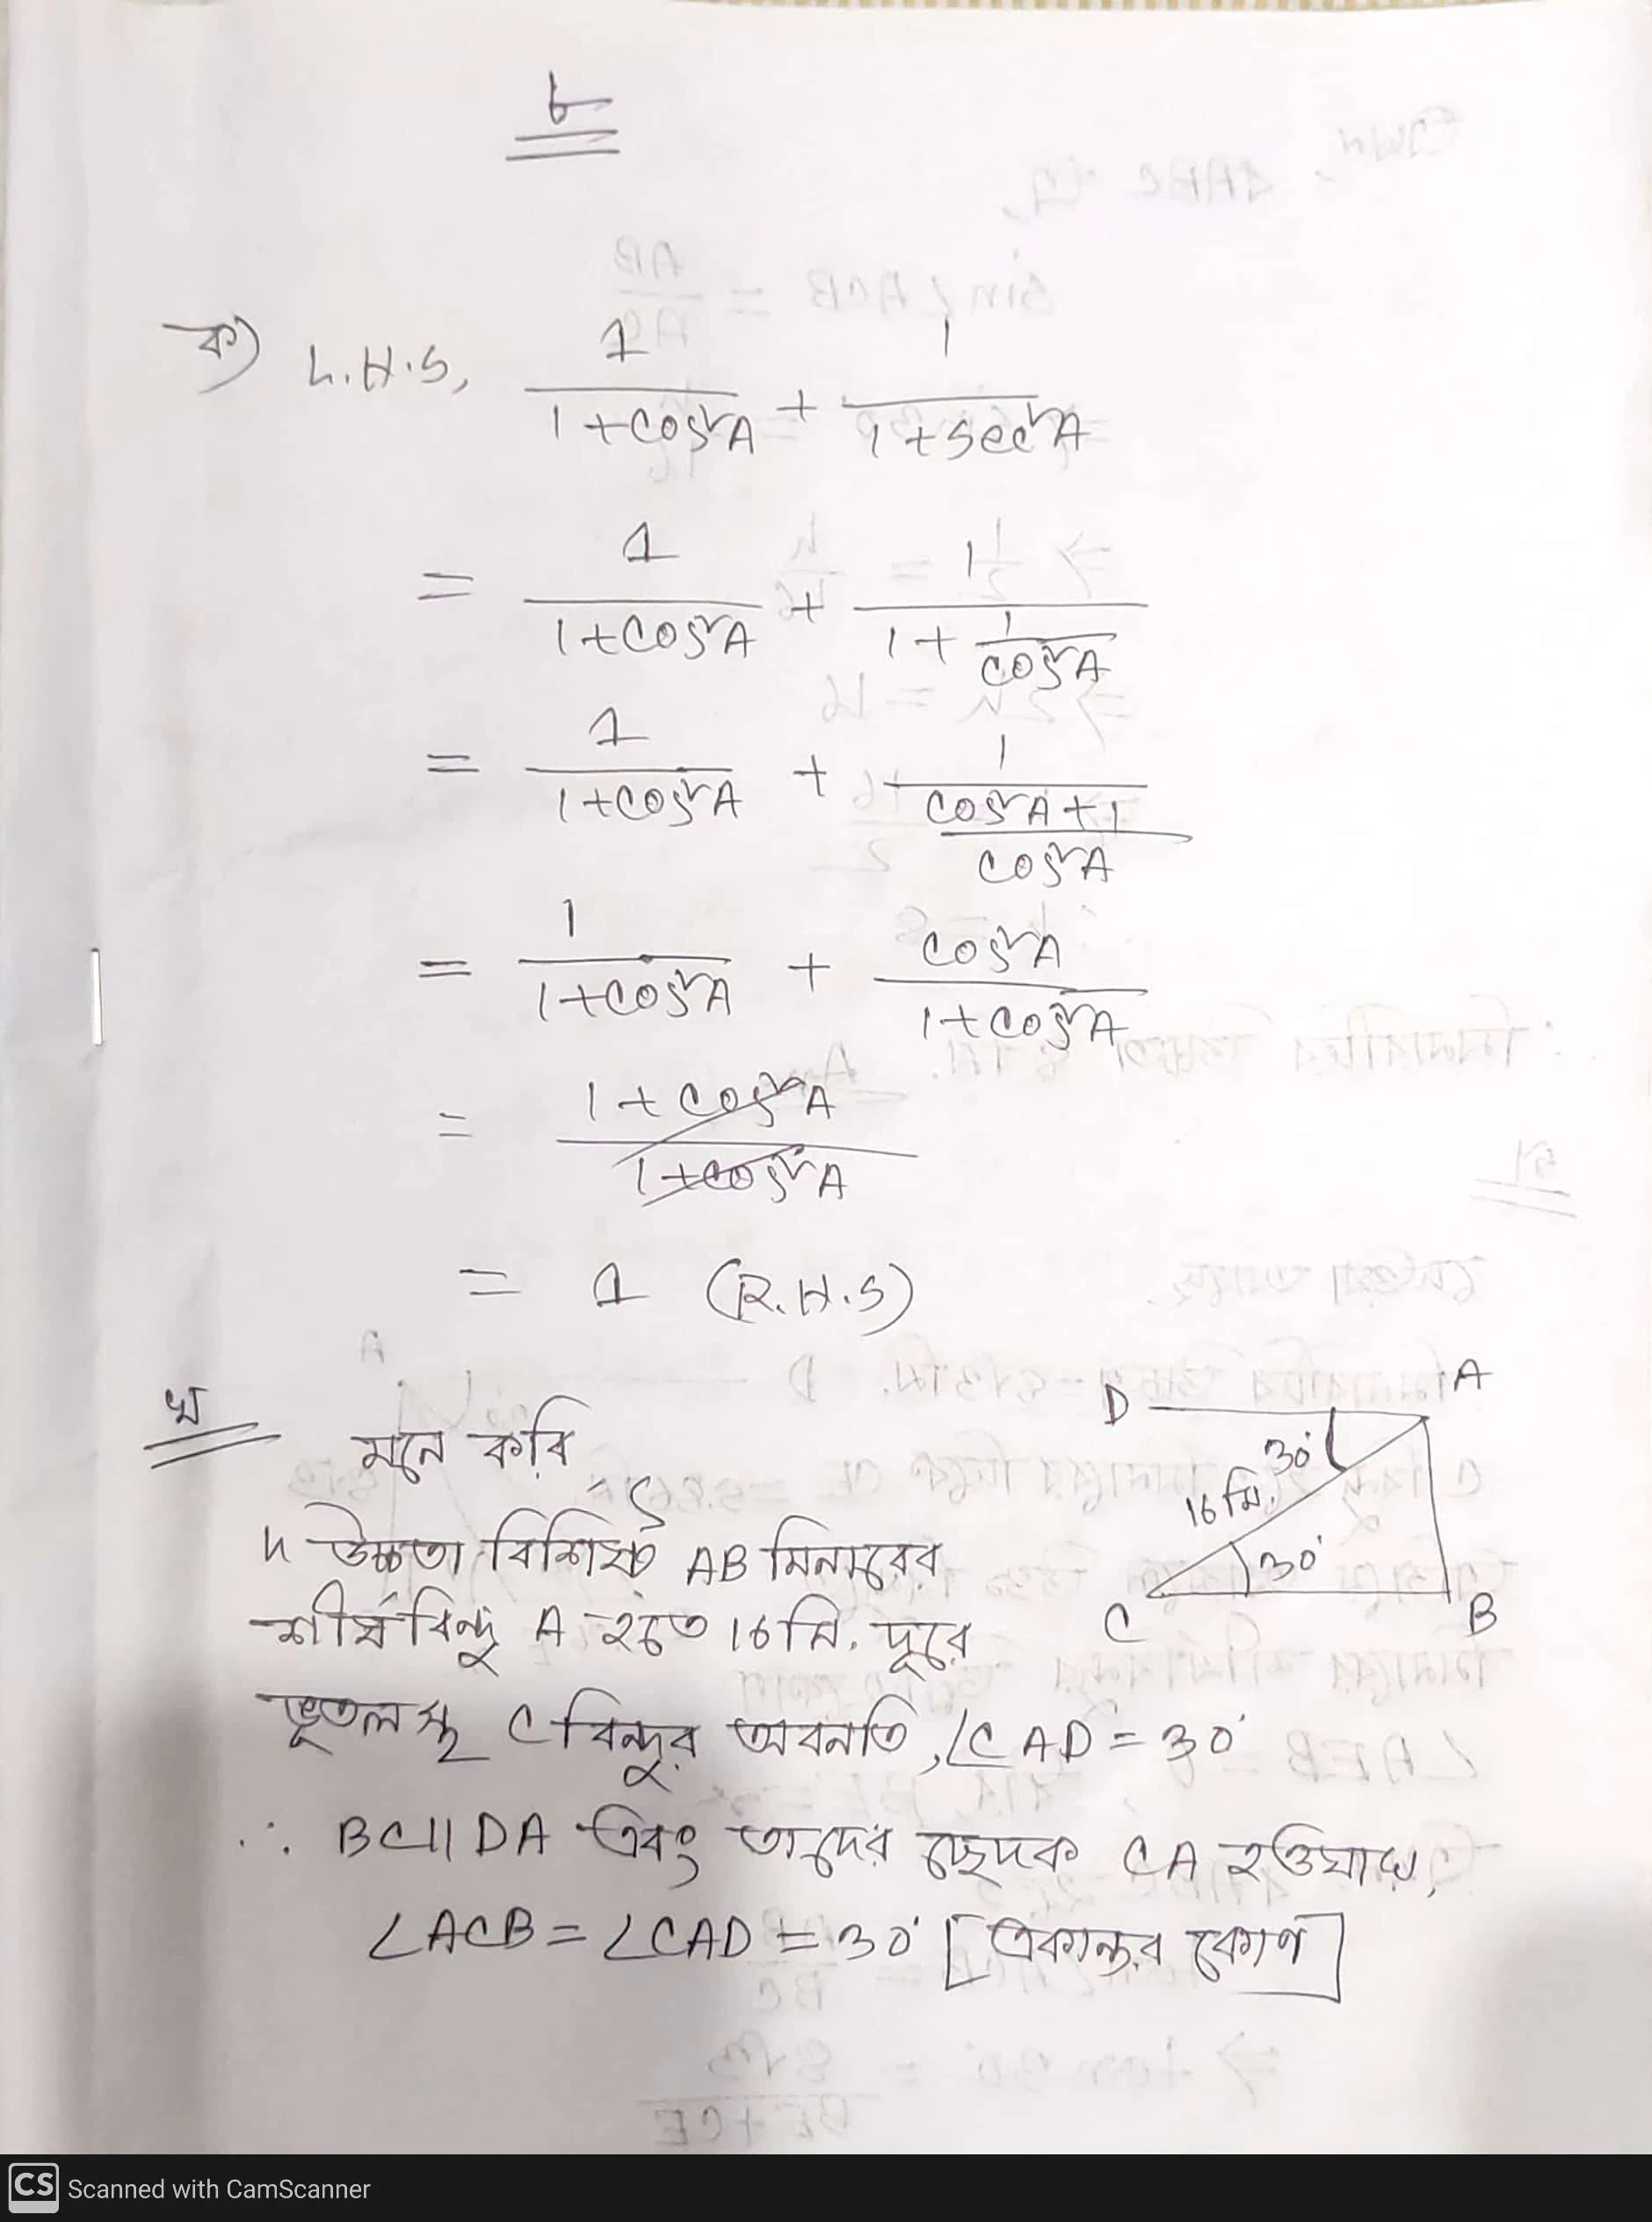 ৮
ক) L.H.S, 1/(1+cos²A) + 1/(1+sec²A)
= 1/(1+cos²A) + 1/(1+ 1/cos²A)
= 1/(1+cos²A) + 1/((cos²A+1)/cos²A)
= 1/(1+cos²A) + cos²A/(1+cos²A)
= (1+cos²A)/(1+cos²A)
= 1 (R.H.S)
খ
মনে করি
h উচ্চতা বিশিষ্ট AB মিনারের
শীর্ষ বিন্দু A হতে 16 মি. দূরে
ভূতলস্থ C বিন্দুর অবনতি, ∠CAD = 30°
∴ BC || DA এবং তাদের ছেদক CA হওয়ায়,
∠ACB = ∠CAD = 30° [একান্তর কোণ]
D A
30°
16 মি.
30°
C B
CS Scanned with CamScanner